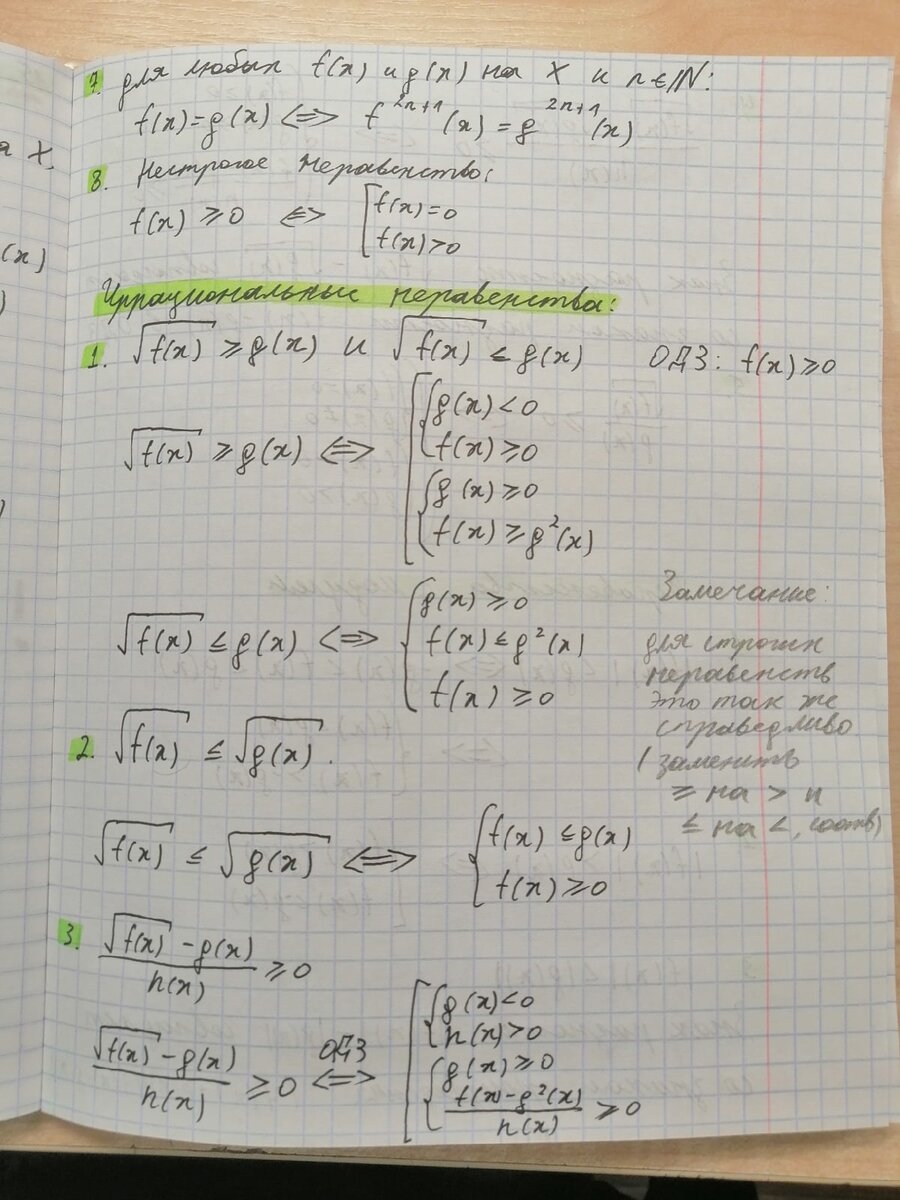 7. для любых f(x) и g(x) на X и n∈ℕ:
f(x)=g(x) <=> f^{2n+1}(x) = g^{2n+1}(x)
8. Нестрогое неравенство:
f(x) ≥0 <=> [ f(x)=0
f(x)>0
Иррациональные неравенства:
1. √f(x) ≥ g(x) и √f(x) ≤ g(x) ОДЗ: f(x) ≥0
√f(x) ≥ g(x) <=> [ { g(x) < 0
f(x) ≥0
{ g(x) ≥0
f(x) ≥ g²(x)
√f(x) ≤ g(x) <=> { g(x) ≥0
f(x) ≤ g²(x)
f(x) ≥0
Замечание:
для строгих
неравенств
это так же
справедливо
(заменить
≥ на > и
≤ на <, соотв)
2. √f(x) ≤ √g(x).
√f(x) ≤ √g(x) <=> { f(x) ≤ g(x)
f(x) ≥0
3. (√f(x) - g(x)) / h(x) ≥0
(√f(x) - g(x)) / h(x) ≥0 ОДЗ <=> [ { g(x)<0
h(x)>0
{ g(x) ≥0
(f(x) - g²(x)) / h(x) ≥0
а X,
(x)
)
)